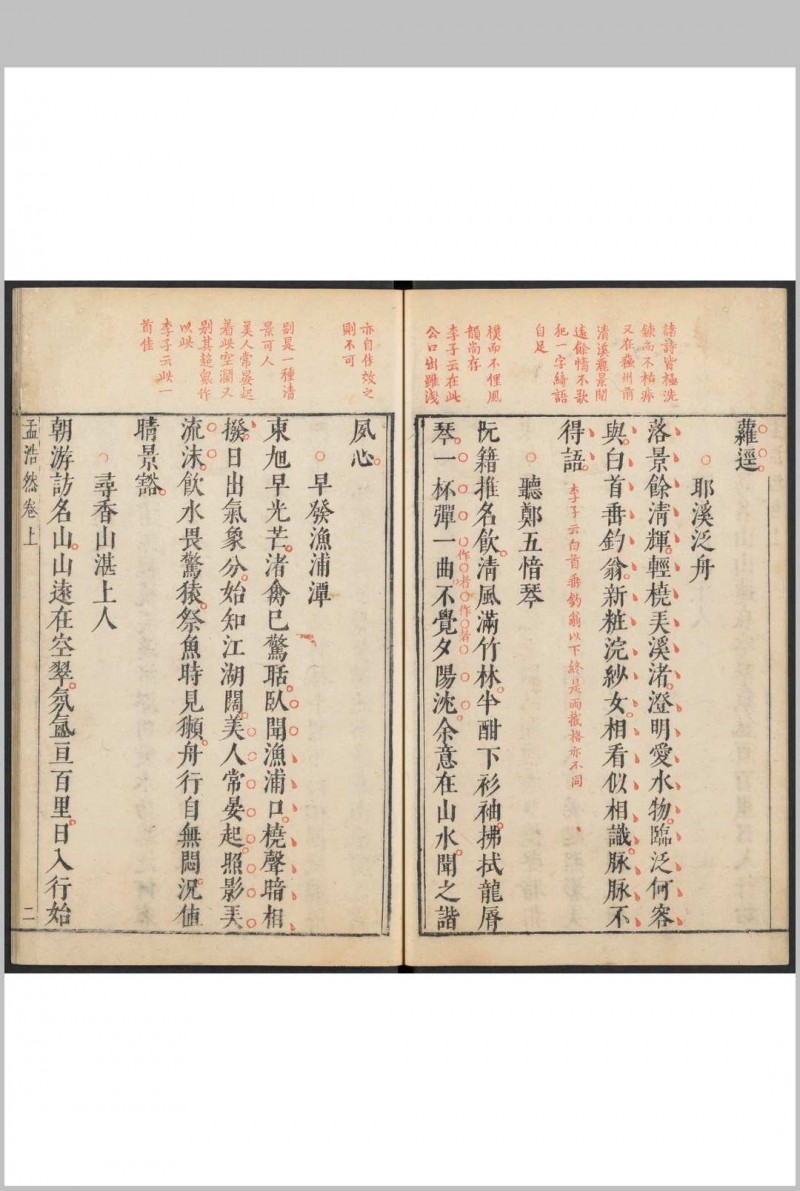 諸詩皆極洗
鍊而不枯瘁
又在蘇州前
清溪麗景閒
遠餘情不欲
犯一字綺語
自足
樸而不俚風
韻尚存
李子云在此
公口出雖淺
蘿逕
耶溪泛舟
落景餘清輝輕橈弄溪渚澄明愛水物臨泛何容
與白首垂釣翁新粧浣紗女相看似相識脉脉不
得語李子云白首垂釣翁以下終是兩截格亦不同
聽鄭五愔琴
阮籍推名飲清風滿竹林半酣下衫袖拂拭龍唇
琴一杯彈一曲不覺夕陽沈余意在山水聞之諧
作者作者
亦自作效之
則不可
別是一種清
景可人
美人常晏起
着此空濶又
別其超衆作
以此
李子云此一
首佳
夙心
早發漁浦潭
東旭早光芒渚禽已驚聒臥聞漁浦口橈聲暗相
撥日出氣象分始知江湖闊美人常晏起照影弄
流沫飲水畏驚猿祭魚時見獺舟行自無悶況值
晴景豁
尋香山湛上人
朝游訪名山山遠在空翠氛氳亘百里日入行始
孟浩然卷上
二